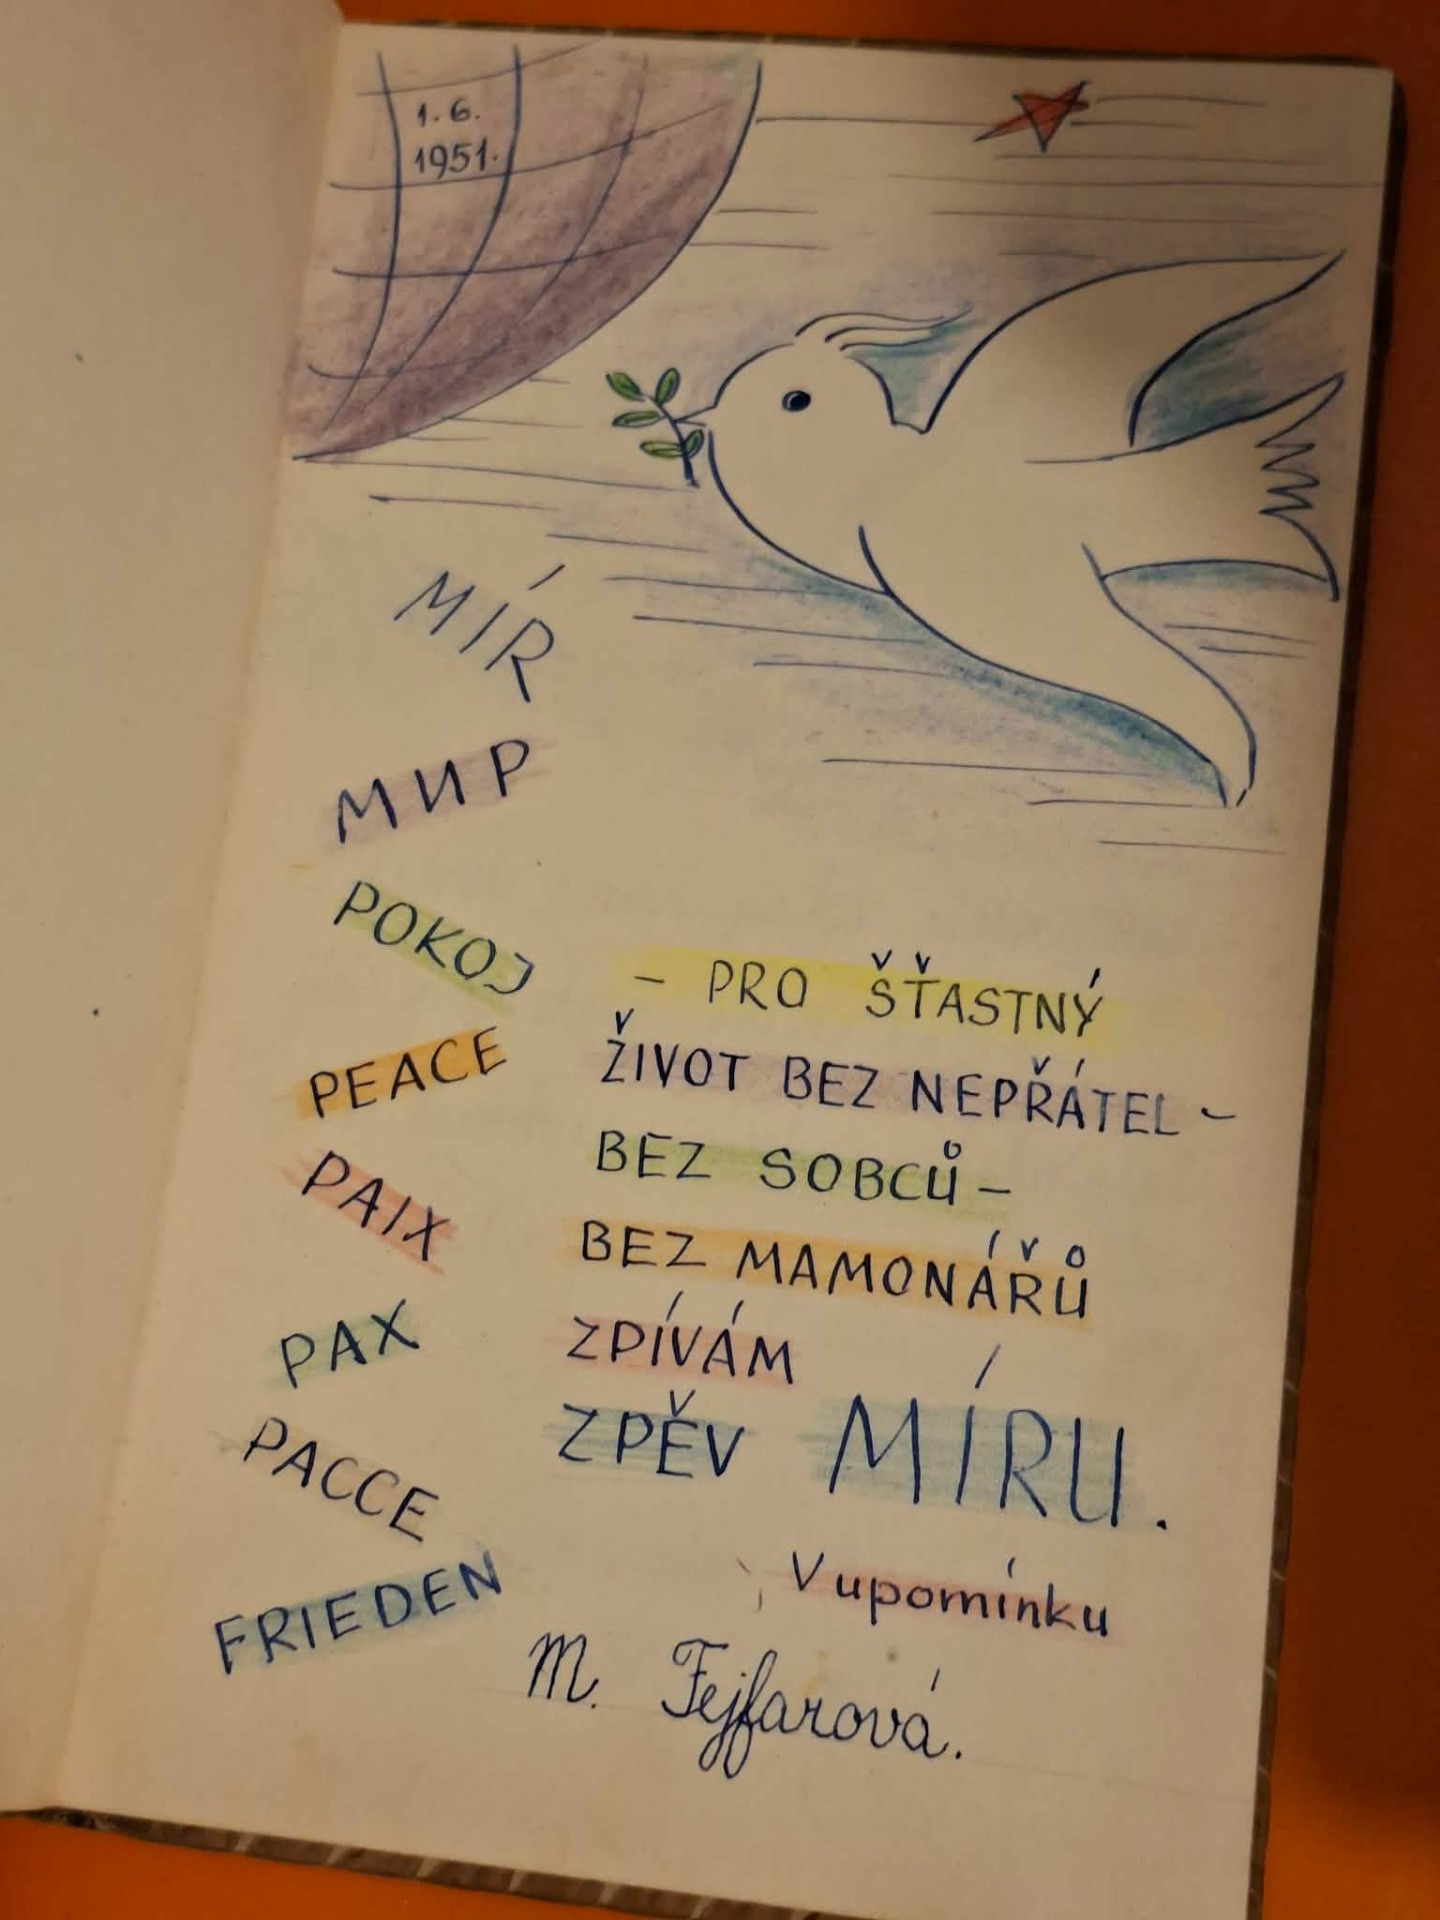 1. 6.
1951.
MÍR
МИР
POKOJ
PEACE
PAIX
PAX
PACCE
FRIEDEN
– PRO ŠŤASTNÝ
ŽIVOT BEZ NEPŘÁTEL –
BEZ SOBCŮ –
BEZ MAMONÁŘŮ
ZPÍVÁM
ZPĚV MÍRU.
V upomínku
M. Fejfarová.